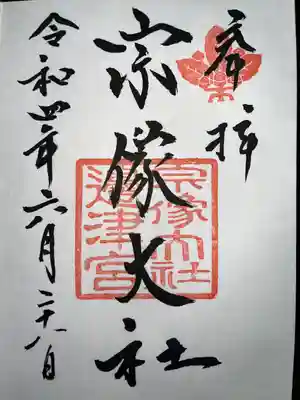 奉拝
宗像大社
宗像大社
邊津宮
令和四年六月二十八日